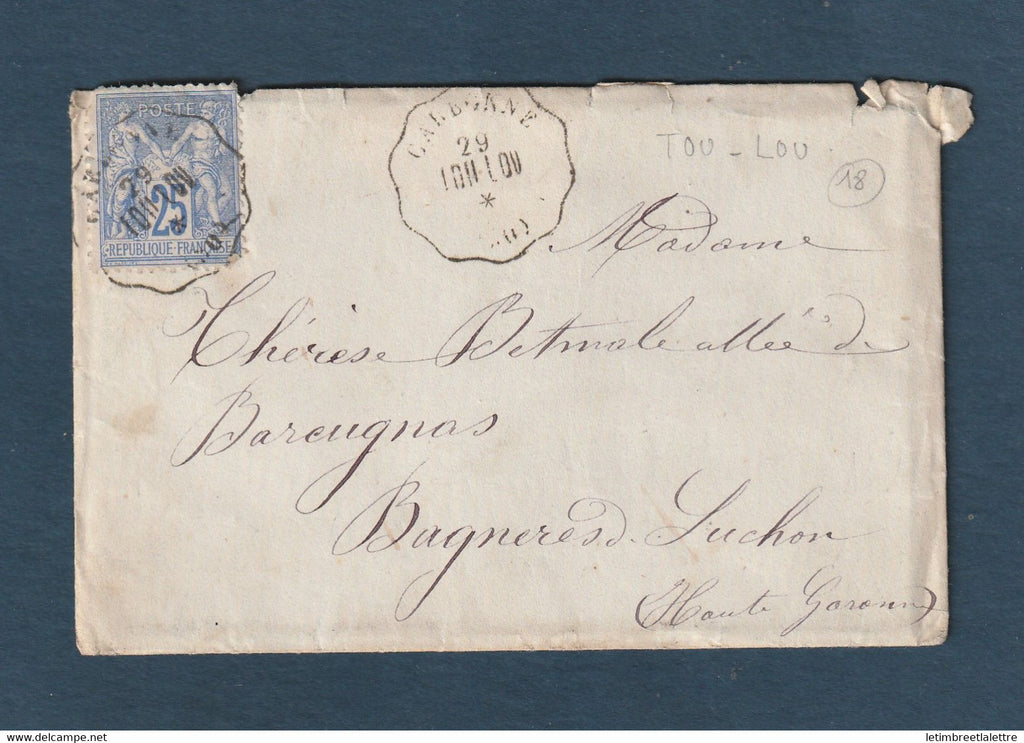 POSTE
25
REPUBLIQUE FRANÇAISE
29
TOU-LOU
*
CARBONNE
29
TOU-LOU
*
TOU - LOU
18
Madame
Thérèse Betmale allée de
Barcugnas
Bagneres d. Luchon
(Haute Garonne)
delcampe.net
letimbreetlalettre